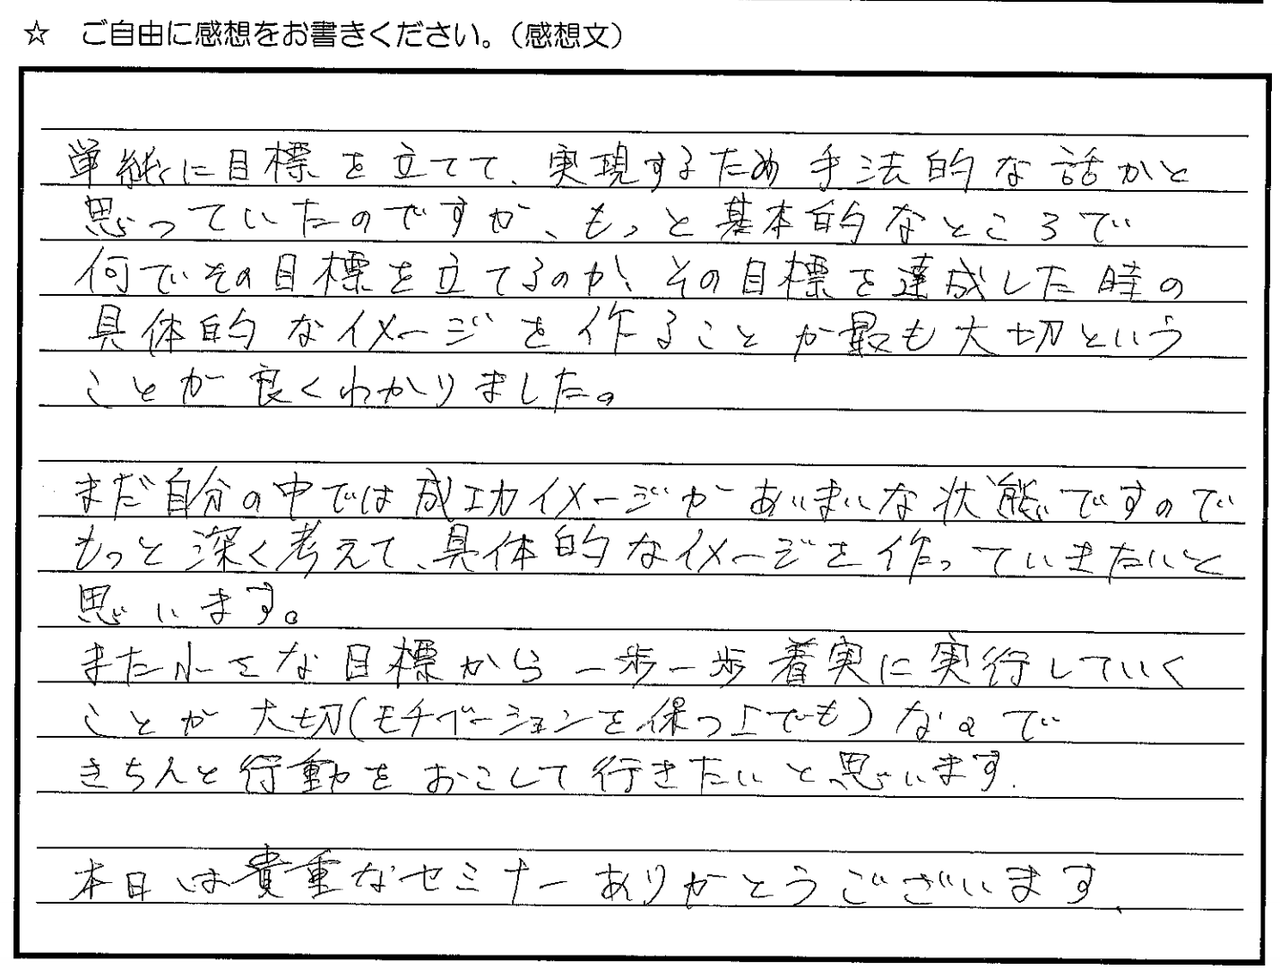 ☆ ご自由に感想をお書きください。(感想文)
単純に目標を立てて、実現するため手法的な話かと
思っていたのですが、もっと基本的なところで
何でその目標を立てるのか、その目標を達成した時の
具体的なイメージを作ることが最も大切という
ことが良くわかりました。
まだ自分の中では成功イメージがあいまいな状態ですので
もっと深く考えて、具体的なイメージを作っていきたいと
思います。
また小さな目標から一歩一歩着実に実行していく
ことが大切(モチベーションを保つ上でも)なので
きちんと行動をおこして行きたいと思います.
本日は貴重なセミナーありがとうございます.